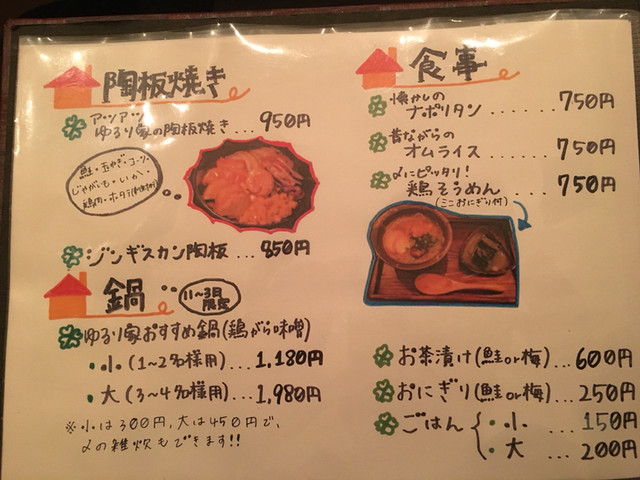 陶板焼き
アツアツ
ゆるり家の陶板焼き...950円
鮭・玉ねぎ・コーン・
じゃがいも・いか・
鶏肉・ホタテ
ジンギスカン陶板...850円
鍋 11〜3月限定
ゆるり家おすすめ鍋(鶏がら味噌)
・小(1〜2名様用)...1,180円
・大(3〜4名様用)...1,980円
※小は300円、大は450円で、
〆の雑炊もできます!!
食事
懐かしの
ナポリタン.......750円
昔ながらの
オムライス.....750円
〆にピッタリ!
鶏そうめん....750円
(ミニおにぎり付)
お茶漬け(鮭or梅)...600円
おにぎり(鮭or梅)...250円
ごはん{・小...150円
・大...200円